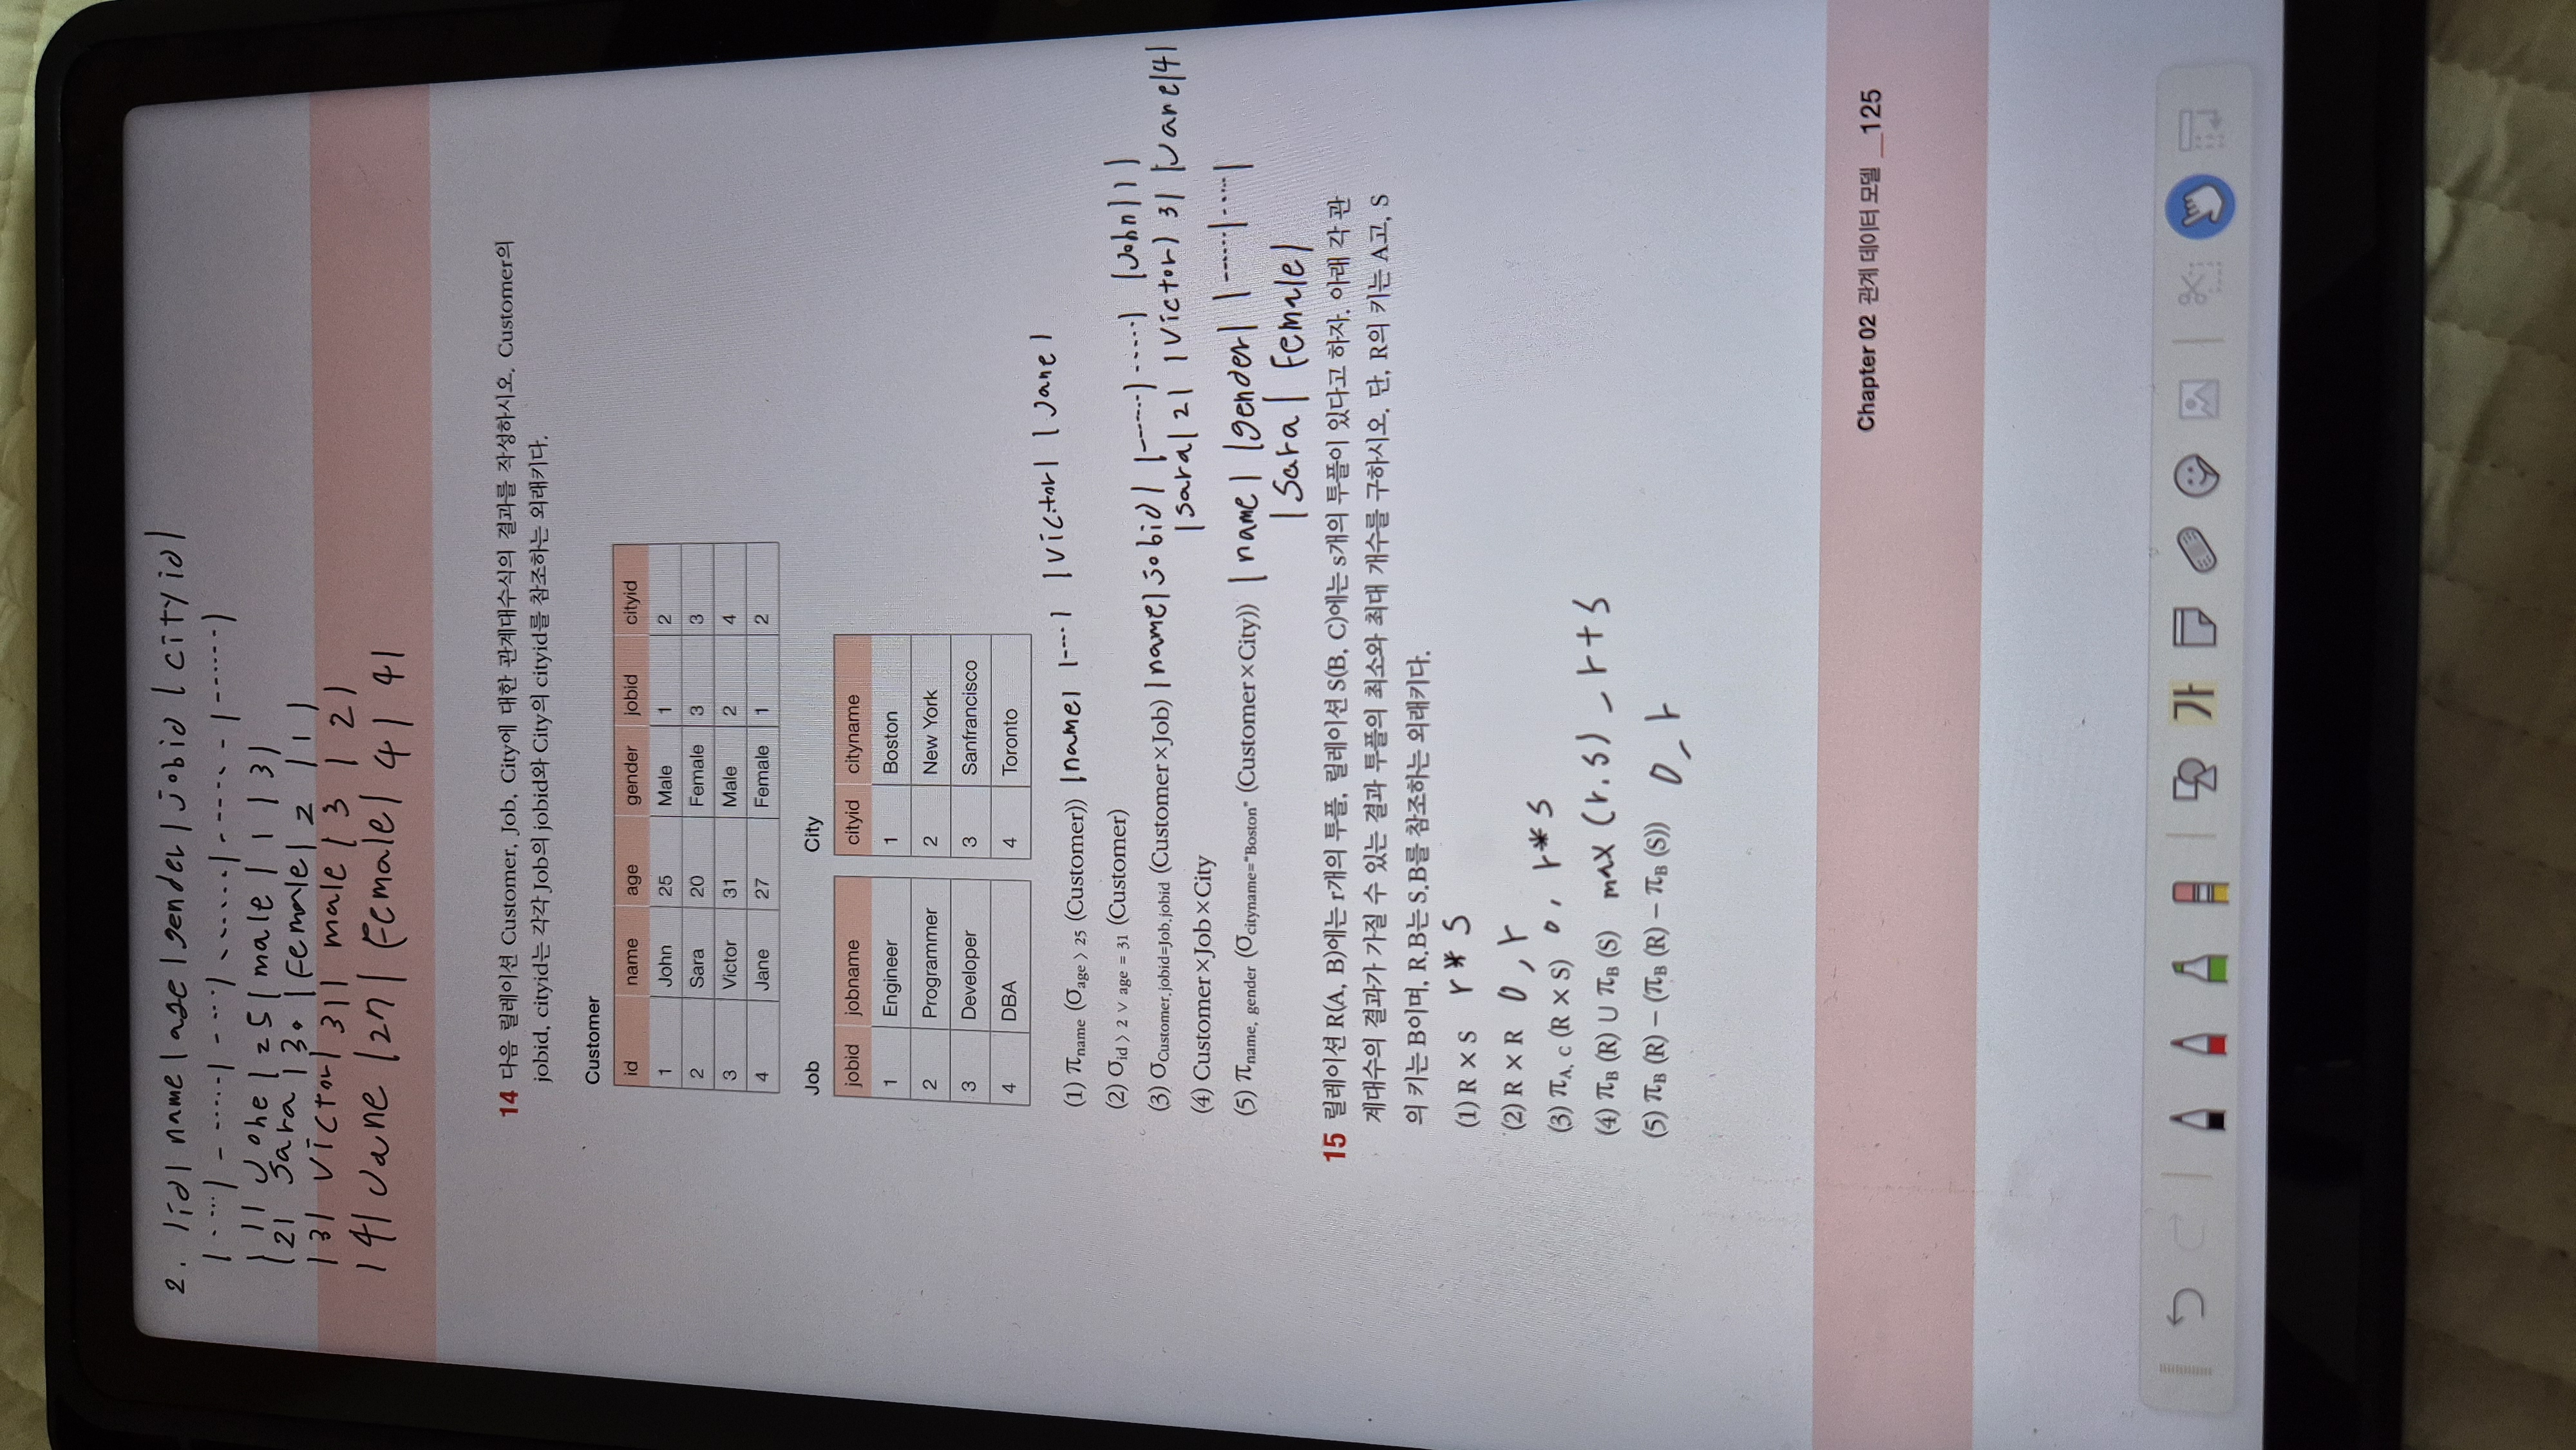 2. |id| name | age | gender | jobid | cityid |
|----| ------| ----| -------| ------- |------|
| 1 | Johe | 25 | male | 1 | 3 |
| 2 | Sara | 30 | Female | 2 | 1 |
| 3 | Victor | 31 | male | 3 | 2 |
| 4 | Jane | 27 | Female | 4 | 4 |
14 다음 릴레이션 Customer, Job, City에 대한 관계대수식의 결과를 작성하시오. Customer의
jobid, cityid는 각각 Job의 jobid와 City의 cityid를 참조하는 외래키다.
Customer
id name age gender jobid cityid
1 John 25 Male 1 2
2 Sara 20 Female 3 3
3 Victor 31 Male 2 4
4 Jane 27 Female 1 2
Job City
jobid jobname cityid cityname
1 Engineer 1 Boston
2 Programmer 2 New York
3 Developer 3 Sanfrancisco
4 DBA 4 Toronto
(1) πname (σage > 25 (Customer)) |name| |----| |Victor| |Jane|
(2) σid > 2 ∨ age = 31 (Customer)
(3) σCustomer.jobid=Job.jobid (Customer×Job) |name| jobid| |------| -----| |John| 1 |
|Sara| 2| |Victor| 3| |Jane|4|
(4) Customer×Job×City
(5) πname, gender (σcityname="Boston" (Customer×City)) |name| |gender| |------|-----|
|Sara| Female|
15 릴레이션 R(A, B)에는 r개의 투플, 릴레이션 S(B, C)에는 s개의 투플이 있다고 하자. 아래 각 관
계대수의 결과가 가질 수 있는 결과 투플의 최소와 최대 개수를 구하시오. 단, R의 키는 A고, S
의 키는 B이며, R.B는 S.B를 참조하는 외래키다.
(1) R × S r * s
(2) R × R 0, r
(3) πA, C (R × S) 0, r*s
(4) πB (R) ∪ πB (S) max (r.s) _ r+s
(5) πB (R) − (πB (R) − πB (S)) 0_ r
Chapter 02 관계 데이터 모델 __125
가